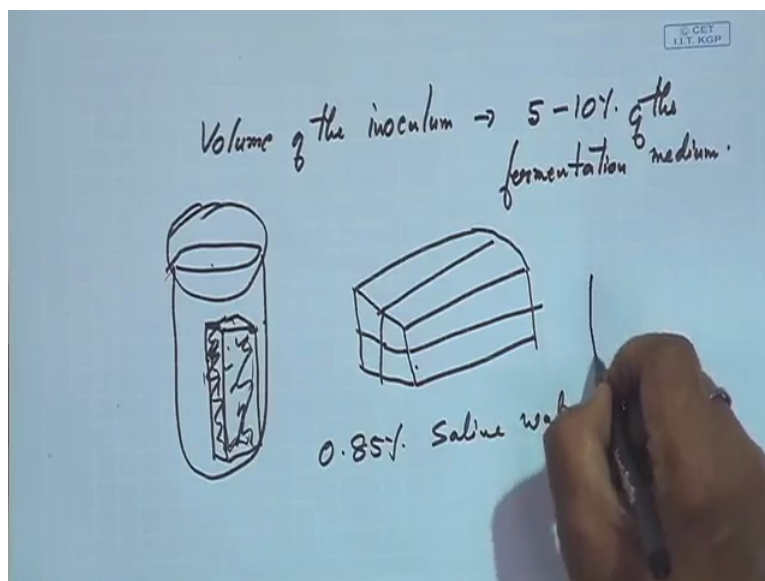 © CET
I.I.T. KGP
Volume of the inoculum → 5-10% of the
fermentation medium.
0.85% Saline